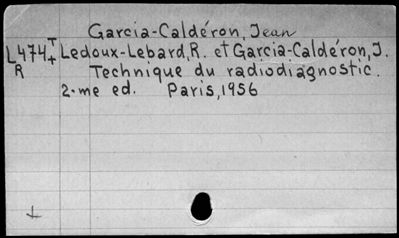 Garcia-Caldéron, Jean
L474T+ Ledoux-Lebard, R. et Garcia-Caldéron, J.
R Technique du radiodiagnostic.
2.me ed. Paris, 1956